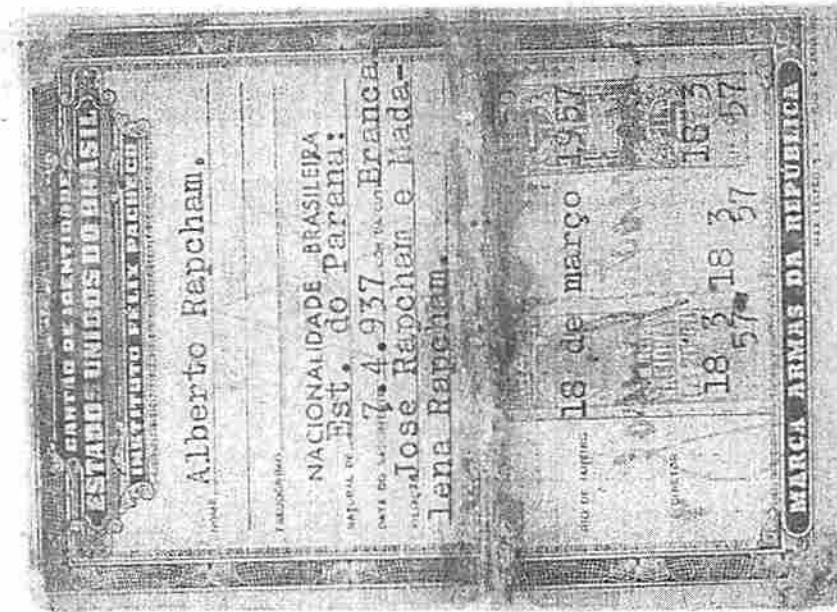 CARTÃO DE IDENTIDADE
ESTADOS UNIDOS DO BRASIL
INSTITUTO FELIX PACHECO
NOME Alberto Rapcham.
NACIONALIDADE BRASILEIRA
NATURAL DE Est. do Paraná:
DATA DO NASCIMENTO 7.4.937 Branca
FILIAÇÃO Jose Rapcham e Mada-
lena Rapcham.
RIO DE JANEIRO 18 de março 1957
18 3 57
18 3 57
18 3 57
O DIRETOR
MARCA ARMAS DA REPUBLICA